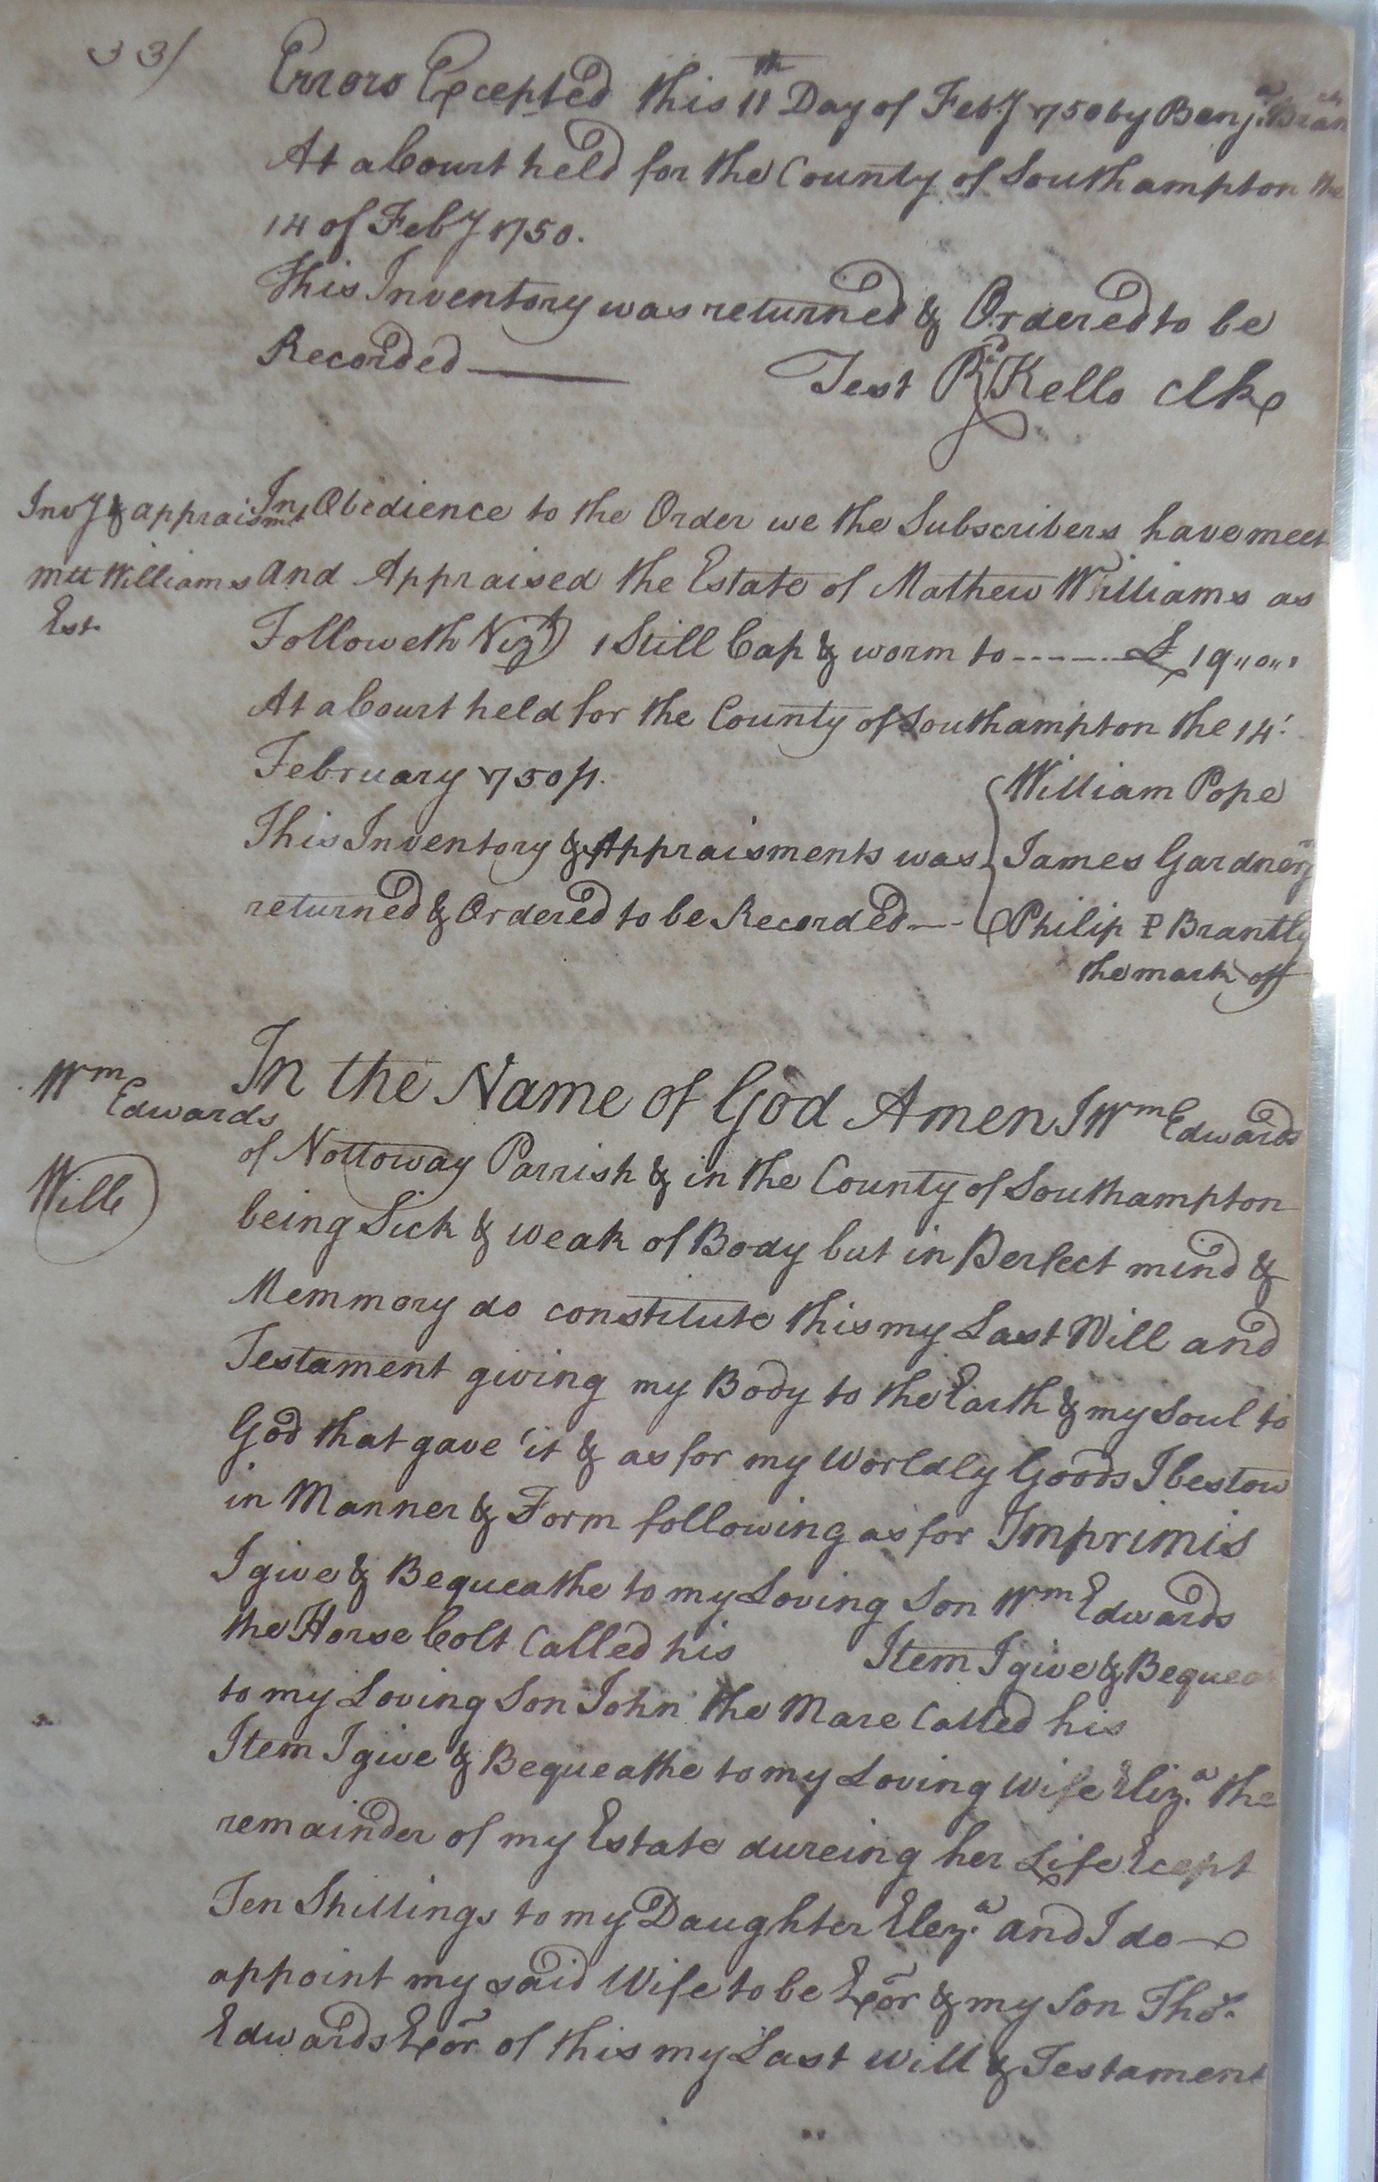 33/
Errors Excepted this 11th Day of Feb.y 1750 by Benj.a
At a Court held for the County of Southampton the
14 of Feby 1750.
This Inventory was returned & Ordered to be
Recorded
Test Rd Kello Clk
Invy & appraismt
mtt Williams
Est.
In Obedience to the Order we the Subscribers have meet
and Appraised the Estate of Mathew Williams as
Followeth Vizt) 1 Still Cap & worm to ------ £ 19"0"
At a Court held for the County of Southampton the 14
February 1750/1.
This Inventory & Appraisments was
returned & Ordered to be Recorded
William Pope
James Gardner
Philip P Brantly
the mark off
Wm Edwards
Will
In the Name of God Amen I Wm Edwards
of Nottoway Parrish & in the County of Southampton
being Sick & weak of Body but in Perfect mind &
Memmory do constitute this my Last Will and
Testament giving my Body to the Earth & my Soul to
God that gave it & as for my Worldly Goods I bestow
in Manner & Form following as for Imprimis
I give & Bequeathe to my Loving Son Wm Edwards
the Horse Colt Called his Item I give &
to my Loving Son John the Mare Called his
Item I give & Bequeathe to my Loving Wife Eliz.a the
remainder of my Estate dureing her Life Ecept
Ten Shillings to my Daughter Elez.a and I do
appoint my said Wife to be Exor & my Son Thos.
Edwards Exor of this my Last Will & Testament